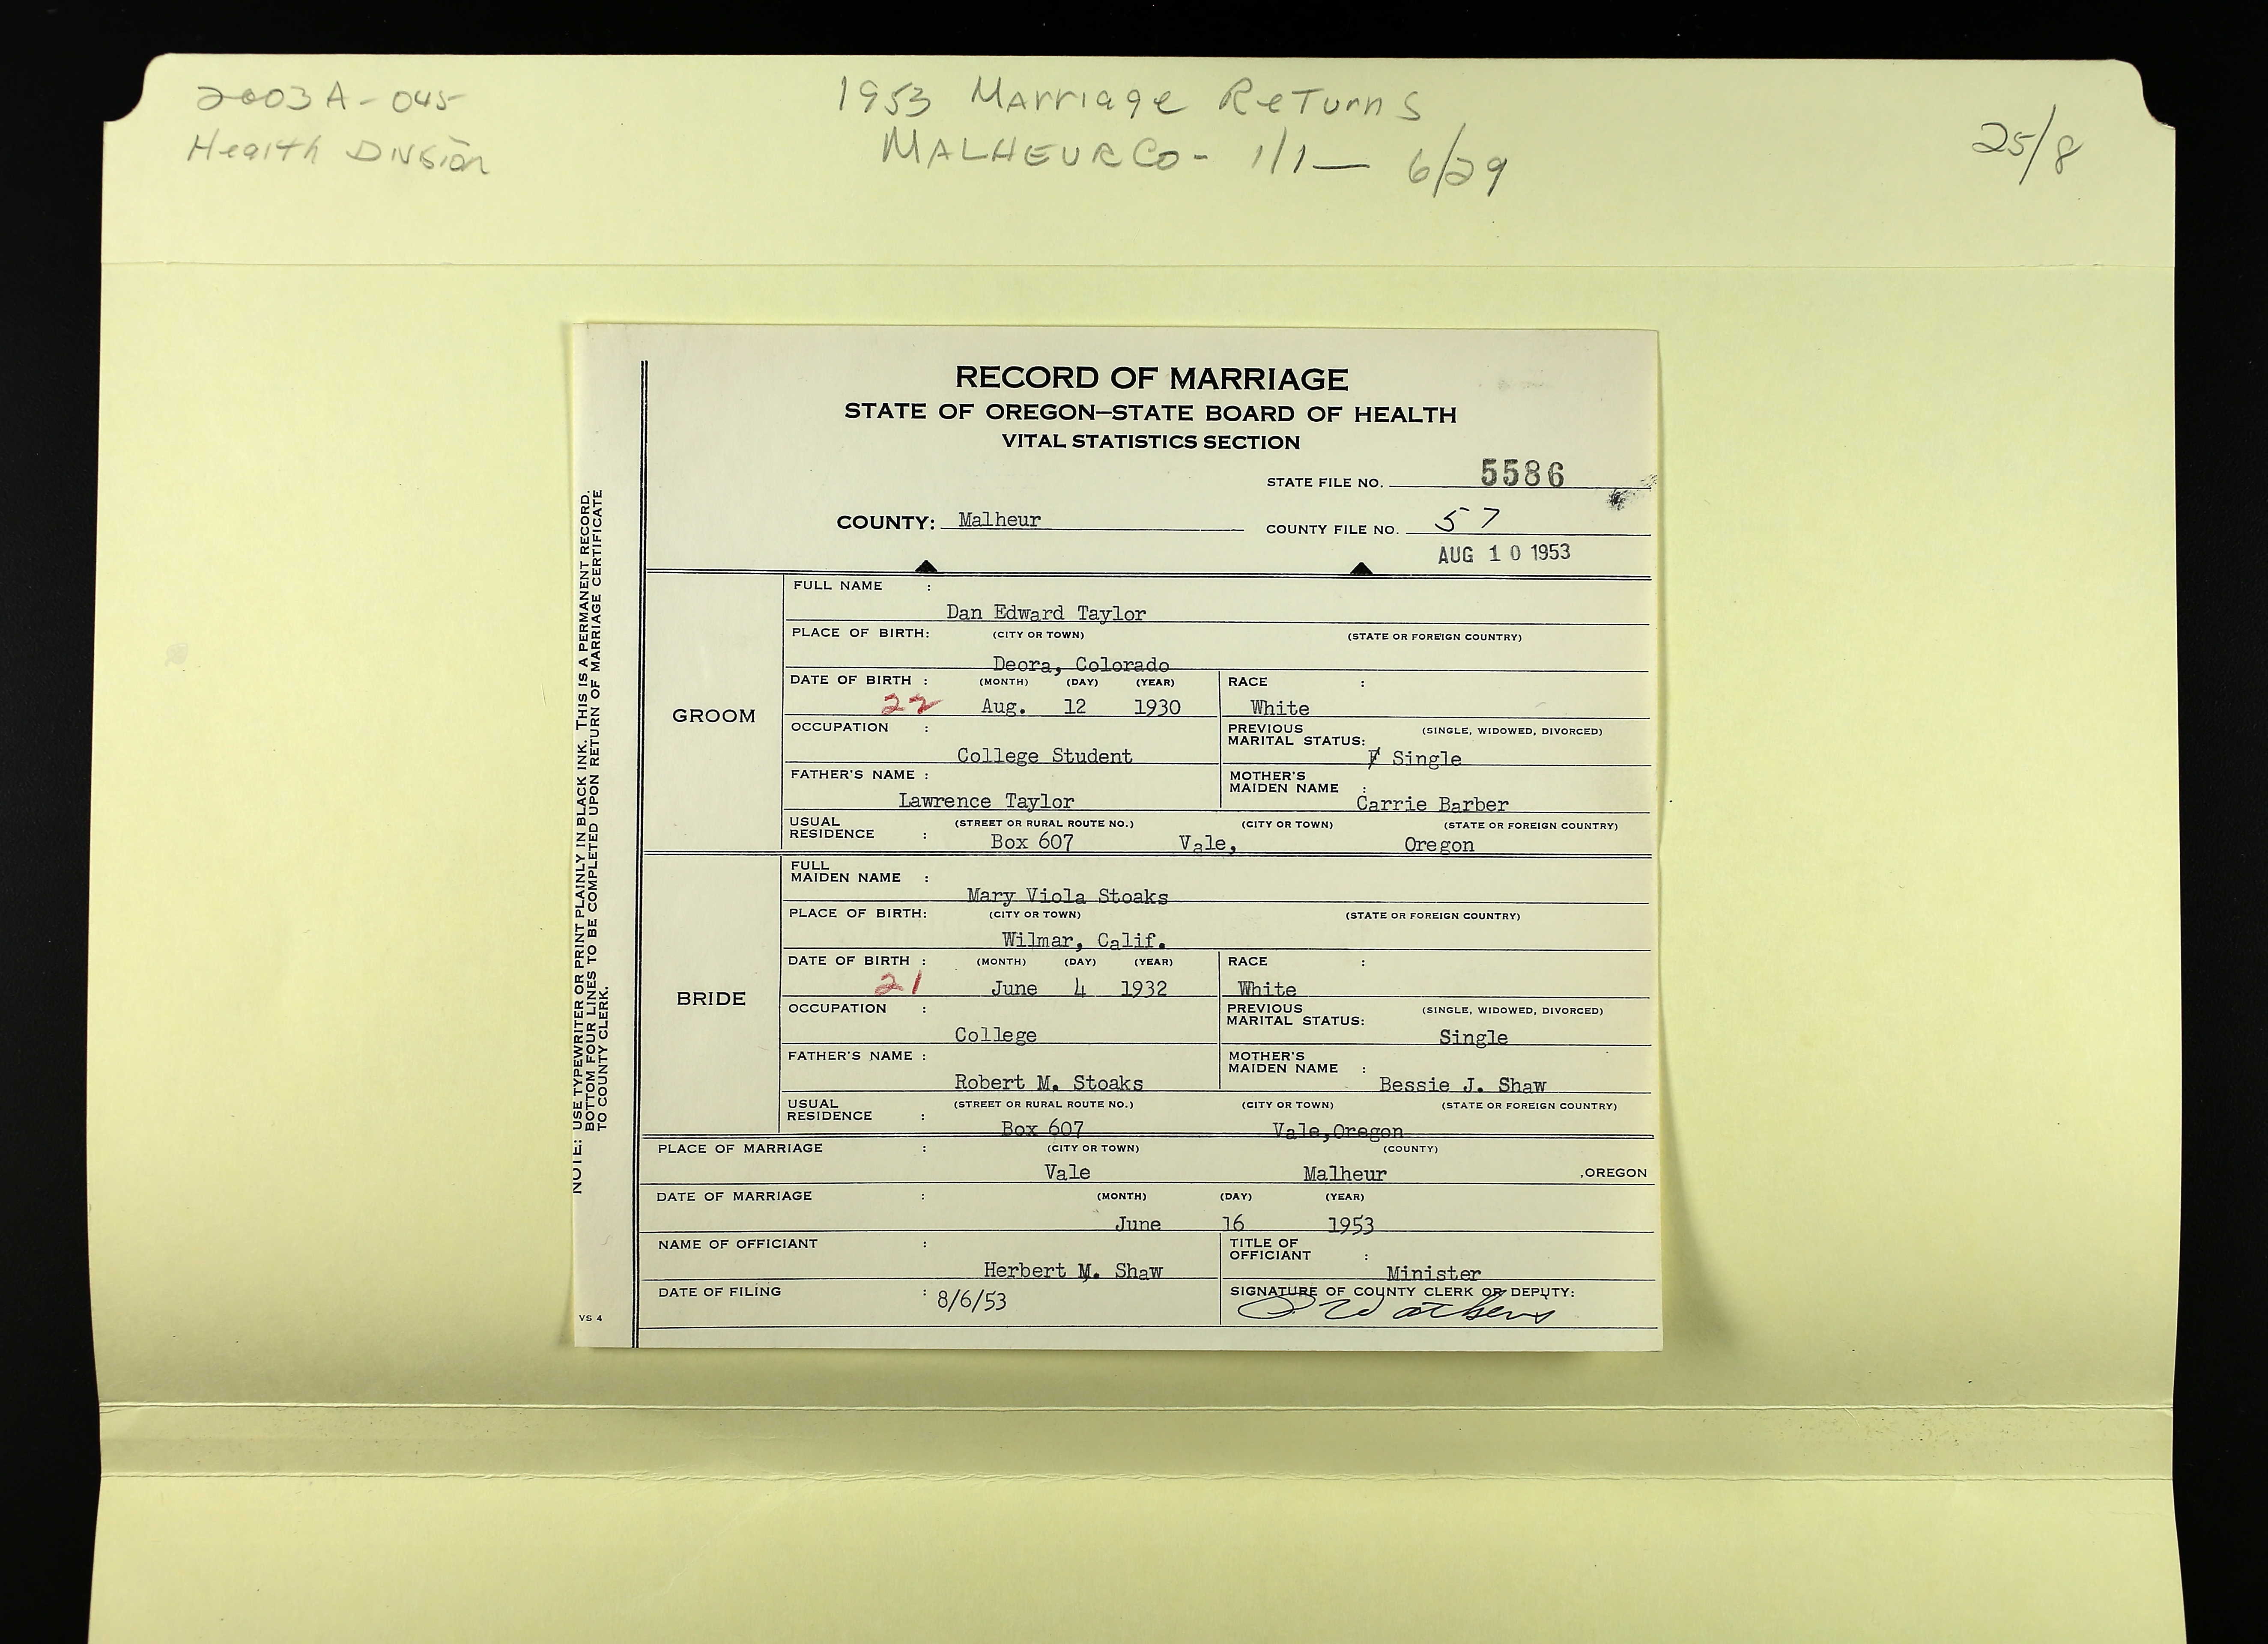 2003A-045
Health Division
1953 Marriage Returns
MALHEUR CO - 1/1 — 6/29
25/8
RECORD OF MARRIAGE
STATE OF OREGON—STATE BOARD OF HEALTH
VITAL STATISTICS SECTION
STATE FILE NO. 5586
COUNTY: Malheur COUNTY FILE NO. 57
AUG 10 1953
GROOM
FULL NAME :
Dan Edward Taylor
PLACE OF BIRTH: (CITY OR TOWN) (STATE OR FOREIGN COUNTRY)
Deora, Colorado
DATE OF BIRTH : (MONTH) (DAY) (YEAR) RACE :
22 Aug. 12 1930 White
OCCUPATION : PREVIOUS MARITAL STATUS: (SINGLE, WIDOWED, DIVORCED)
College Student Single
FATHER'S NAME : MOTHER'S MAIDEN NAME :
Lawrence Taylor Carrie Barber
USUAL RESIDENCE : (STREET OR RURAL ROUTE NO.) (CITY OR TOWN) (STATE OR FOREIGN COUNTRY)
Box 607 Vale, Oregon
BRIDE
FULL MAIDEN NAME :
Mary Viola Stoaks
PLACE OF BIRTH: (CITY OR TOWN) (STATE OR FOREIGN COUNTRY)
Wilmar, Calif.
DATE OF BIRTH : (MONTH) (DAY) (YEAR) RACE :
21 June 4 1932 White
OCCUPATION : PREVIOUS MARITAL STATUS: (SINGLE, WIDOWED, DIVORCED)
College Single
FATHER'S NAME : MOTHER'S MAIDEN NAME :
Robert M. Stoaks Bessie J. Shaw
USUAL RESIDENCE : (STREET OR RURAL ROUTE NO.) (CITY OR TOWN) (STATE OR FOREIGN COUNTRY)
Box 607 Vale,Oregon
PLACE OF MARRIAGE : (CITY OR TOWN) (COUNTY)
Vale Malheur ,OREGON
DATE OF MARRIAGE : (MONTH) (DAY) (YEAR)
June 16 1953
NAME OF OFFICIANT : TITLE OF OFFICIANT :
Herbert M. Shaw Minister
DATE OF FILING : 8/6/53 SIGNATURE OF COUNTY CLERK OR DEPUTY:
VS 4
NOTE: USE TYPEWRITER OR PRINT PLAINLY IN BLACK INK. THIS IS A PERMANENT RECORD.
BOTTOM FOUR LINES TO BE COMPLETED UPON RETURN OF MARRIAGE CERTIFICATE
TO COUNTY CLERK.